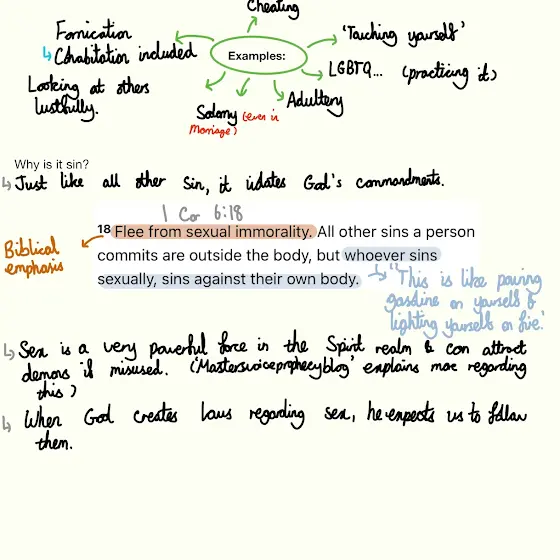 Cheating
Fornication
↳ Cohabitation included
Examples:
'Touching yourself'
LGBTQ... (practicing it)
Looking at others
lustfully.
Sodomy (even in
Marriage)
Adultery
Why is it sin?
↳ Just like all other sin, it violates God's commandments.
1 Cor 6:18
18 Flee from sexual immorality. All other sins a person
commits are outside the body, but whoever sins
sexually, sins against their own body.
Biblical
emphasis
"This is like pouring
gasoline on yourself &
lighting yourself on fire."
↳ Sex is a very powerful force in the Spirit realm & can attract
demons if misused. ('Mastersvoiceprophecyblog' explains more regarding
this)
↳ When God creates laws regarding sex, he expects us to follow
them.